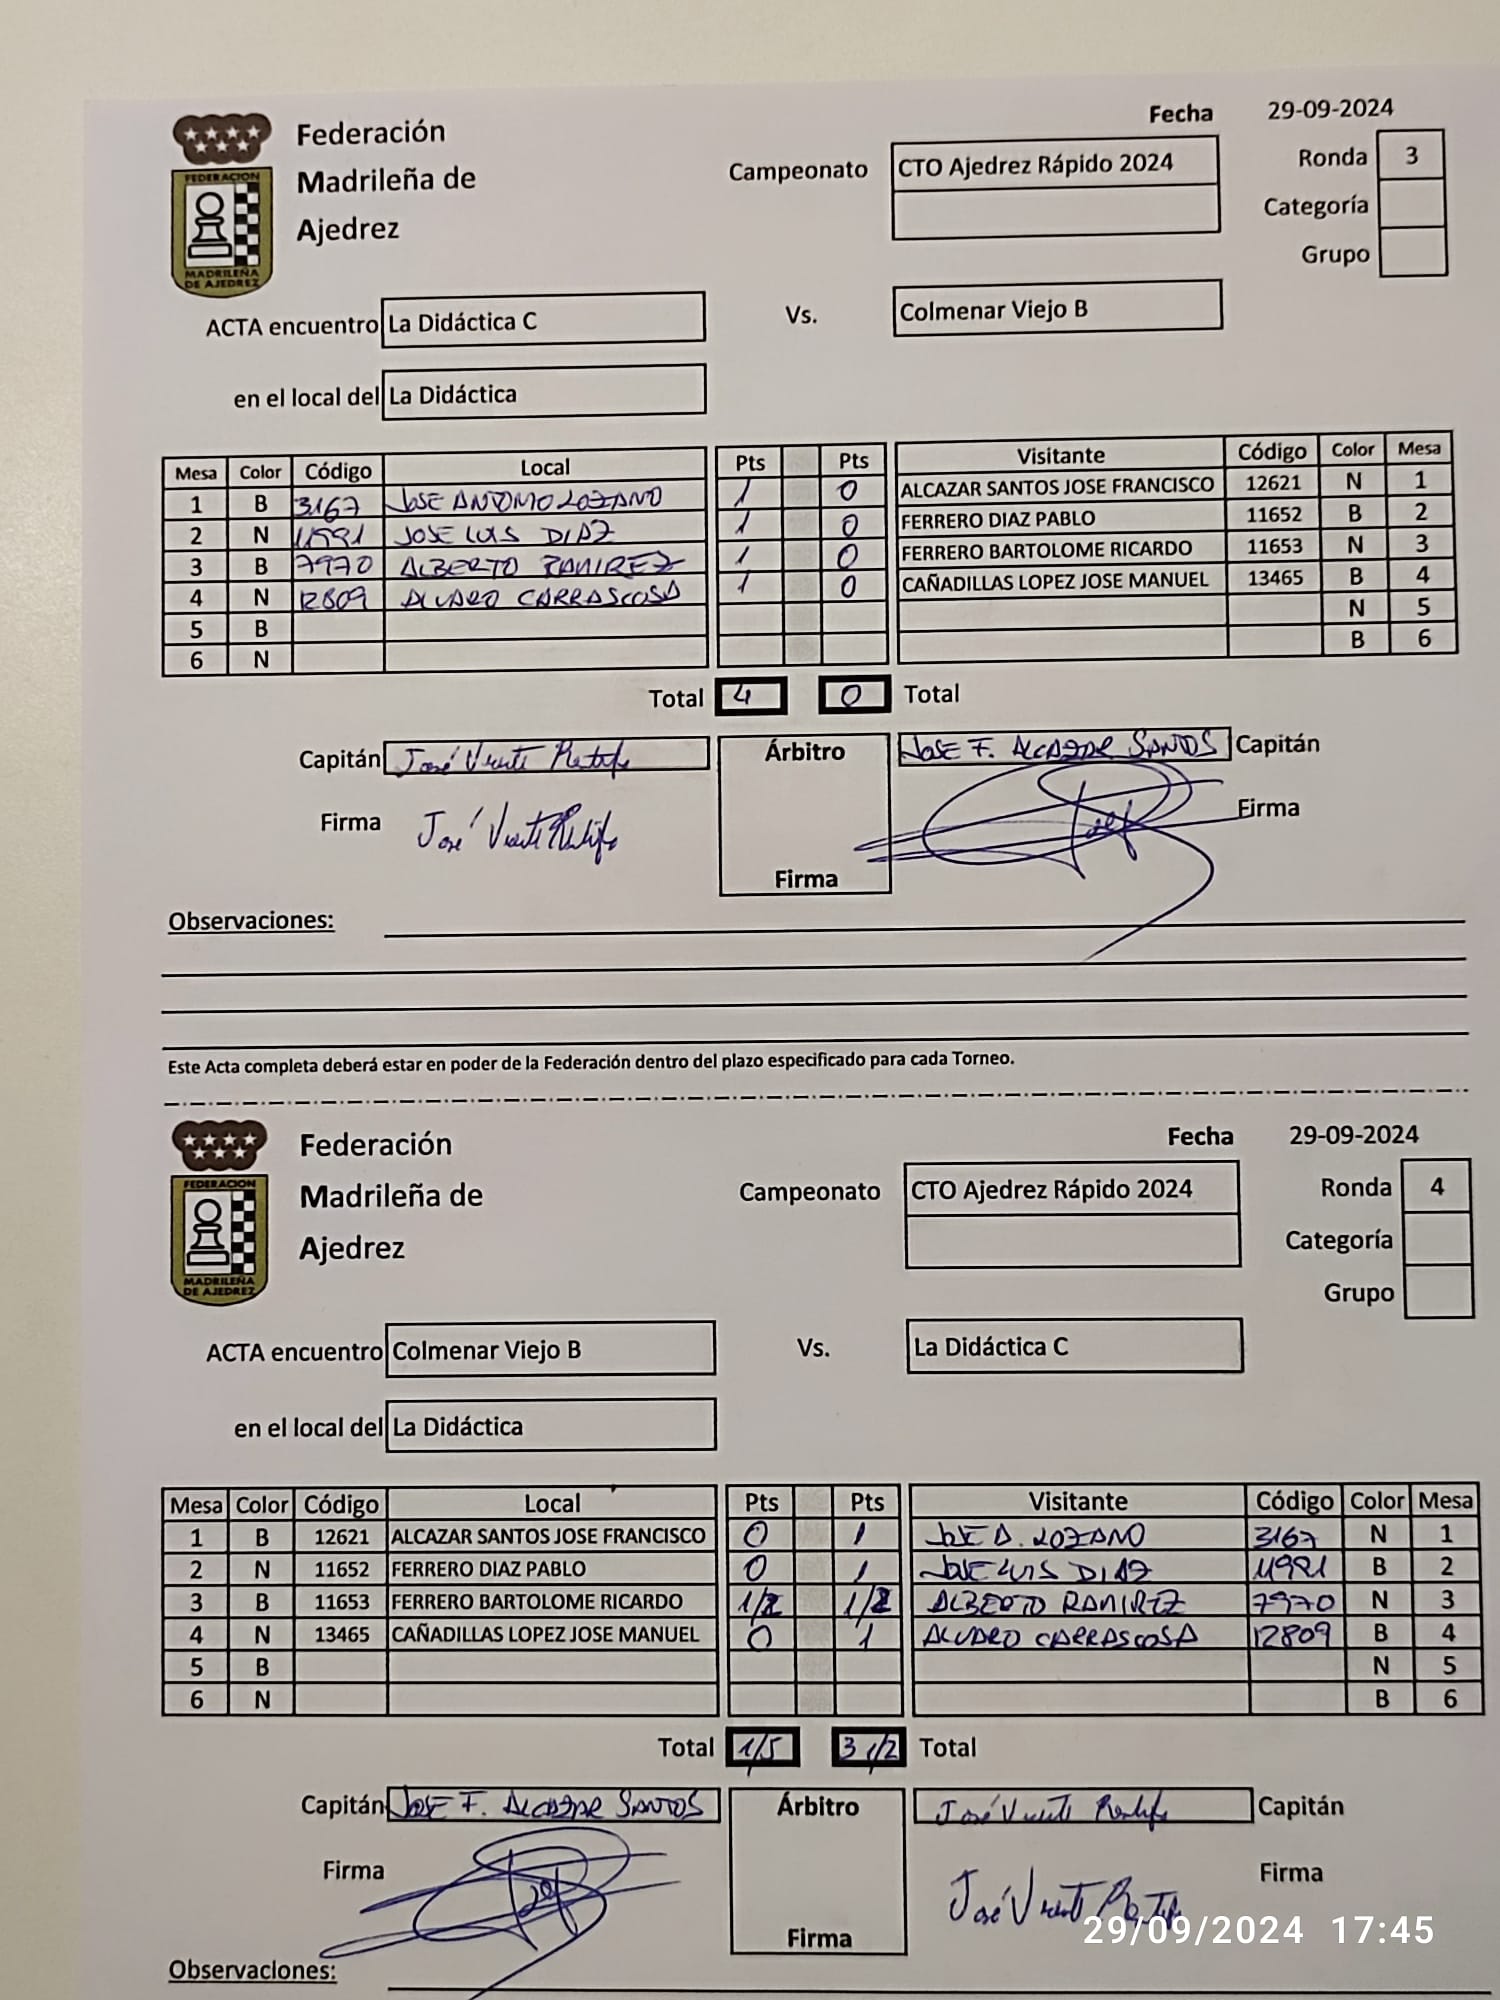 Fecha 29-09-2024
Federación
Madrileña de
Ajedrez
FEDERACION
MADRILEÑA
DE AJEDREZ
Campeonato CTO Ajedrez Rápido 2024
Ronda 3
Categoría
Grupo
ACTA encuentro La Didáctica C Vs. Colmenar Viejo B
en el local del La Didáctica
Mesa Color Código Local Pts Pts Visitante Código Color Mesa
1 B 3167 JOSE ANTONIO LOZANO 1 0 ALCAZAR SANTOS JOSE FRANCISCO 12621 N 1
2 N 11991 JOSE LUIS DIAZ 1 0 FERRERO DIAZ PABLO 11652 B 2
3 B 7970 ALBERTO RAMIREZ 1 0 FERRERO BARTOLOME RICARDO 11653 N 3
4 N 12809 ALVARO CARRASCOSA 1 0 CAÑADILLAS LOPEZ JOSE MANUEL 13465 B 4
5 B N 5
6 N B 6
Total 4 0 Total
Capitán José Vicente Árbitro JOSE F. ALCAZAR SANTOS Capitán
Firma José Vicente Firma
Firma
Observaciones:
Este Acta completa deberá estar en poder de la Federación dentro del plazo especificado para cada Torneo.
Fecha 29-09-2024
Federación
Madrileña de
Ajedrez
FEDERACION
MADRILEÑA
DE AJEDREZ
Campeonato CTO Ajedrez Rápido 2024
Ronda 4
Categoría
Grupo
ACTA encuentro Colmenar Viejo B Vs. La Didáctica C
en el local del La Didáctica
Mesa Color Código Local Pts Pts Visitante Código Color Mesa
1 B 12621 ALCAZAR SANTOS JOSE FRANCISCO 0 1 JOSE A. LOZANO 3167 N 1
2 N 11652 FERRERO DIAZ PABLO 0 1 JOSE LUIS DIAZ 11991 B 2
3 B 11653 FERRERO BARTOLOME RICARDO 1/2 1/2 ALBERTO RAMIREZ 7970 N 3
4 N 13465 CAÑADILLAS LOPEZ JOSE MANUEL 0 1 ALVARO CARRASCOSA 12809 B 4
5 B N 5
6 N B 6
Total 1/5 3 1/2 Total
Capitán JOSE F. ALCAZAR SANTOS Árbitro José Vicente Capitán
Firma José Vicente Firma
Firma
Observaciones:
29/09/2024 17:45